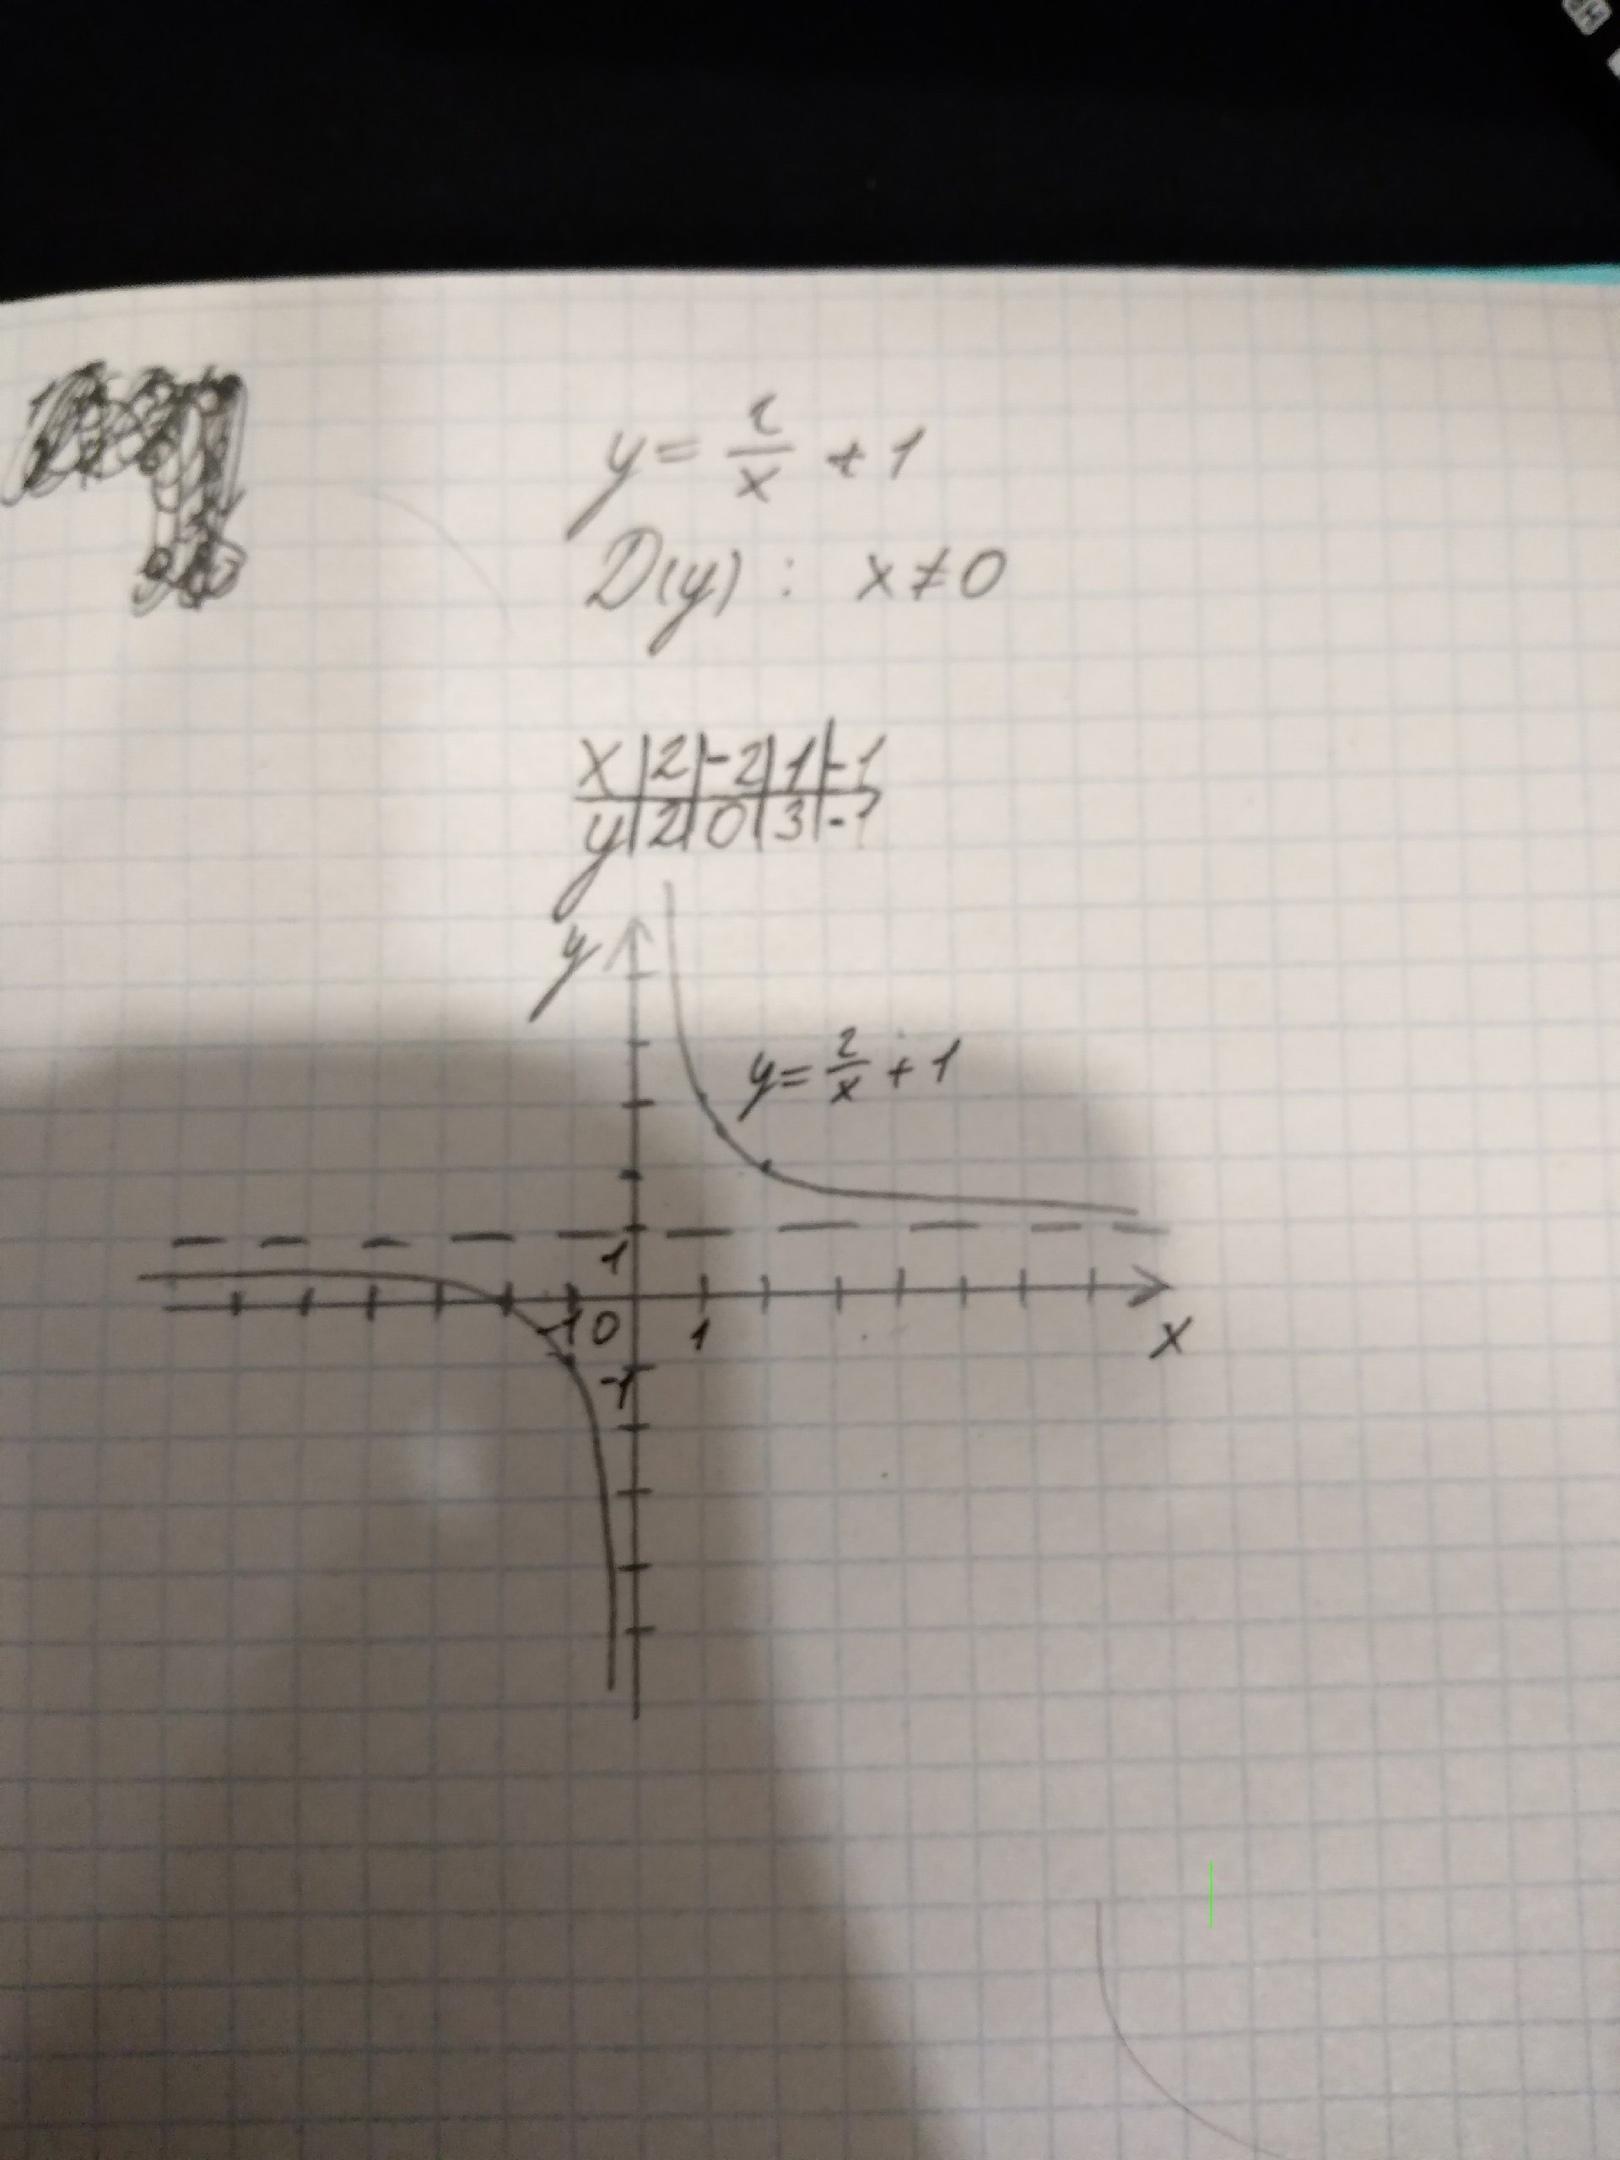 y = 2/x + 1
D(y) : x ≠ 0
x | 2 | -2 | 1 | -1
y | 2 | 0 | 3 | -1
y
y = 2/x + 1
1
-1 0 1
x
-1